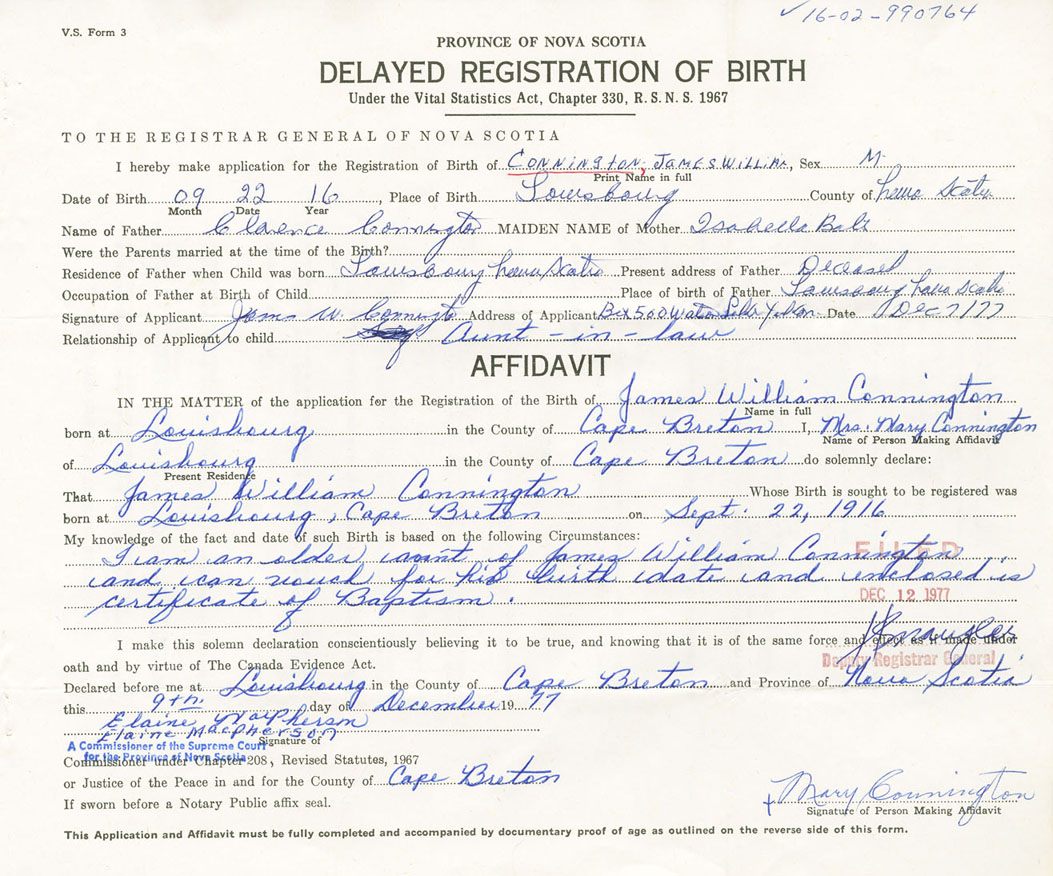 ✓16-02-990764
V.S. Form 3
PROVINCE OF NOVA SCOTIA
DELAYED REGISTRATION OF BIRTH
Under the Vital Statistics Act, Chapter 330, R. S. N. S. 1967
TO THE REGISTRAR GENERAL OF NOVA SCOTIA
I hereby make application for the Registration of Birth of CONNINGTON, JAMES WILLIAM, Sex M.
Print Name in full
Date of Birth 09 22 16, Place of Birth Louisbourg County of Nova Scotia
Month Date Year
Name of Father Clarence Connington MAIDEN NAME of Mother Isabella
Were the Parents married at the time of the Birth?
Residence of Father when Child was born Louisbourg Nova Scotia Present address of Father Deceased
Occupation of Father at Birth of Child Place of birth of Father Louisbourg Nova Scotia
Signature of Applicant James W. Connington Address of Applicant Box 500 Watson Lake Yukon Date Dec 7/77
Relationship of Applicant to child Aunt-in-law
AFFIDAVIT
IN THE MATTER of the application for the Registration of the Birth of James William Connington
Name in full
born at Louisbourg in the County of Cape Breton I, Mrs. Mary Connington
Name of Person Making Affidavit
of Louisbourg in the County of Cape Breton do solemnly declare:
Present Residence
That James William Connington Whose Birth is sought to be registered was
born at Louisbourg, Cape Breton on Sept. 22, 1916
My knowledge of the fact and date of such Birth is based on the following Circumstances:
I am an older aunt of James William Connington
and can vouch for his birth date and enclosed is
certificate of Baptism.
FILED
DEC 12 1977
Deputy Registrar General
I make this solemn declaration conscientiously believing it to be true, and knowing that it is of the same force and effect as if made under
oath and by virtue of The Canada Evidence Act.
Declared before me at Louisbourg in the County of Cape Breton and Province of Nova Scotia
this 9th. day of December 1977
Elaine MacPherson
Elaine MacPherson
Signature of
A Commissioner of the Supreme Court
for the Province of Nova Scotia
Commissioner under Chapter 208, Revised Statutes, 1967
or Justice of the Peace in and for the County of Cape Breton
If sworn before a Notary Public affix seal.
Mary Connington
Signature of Person Making Affidavit
This Application and Affidavit must be fully completed and accompanied by documentary proof of age as outlined on the reverse side of this form.